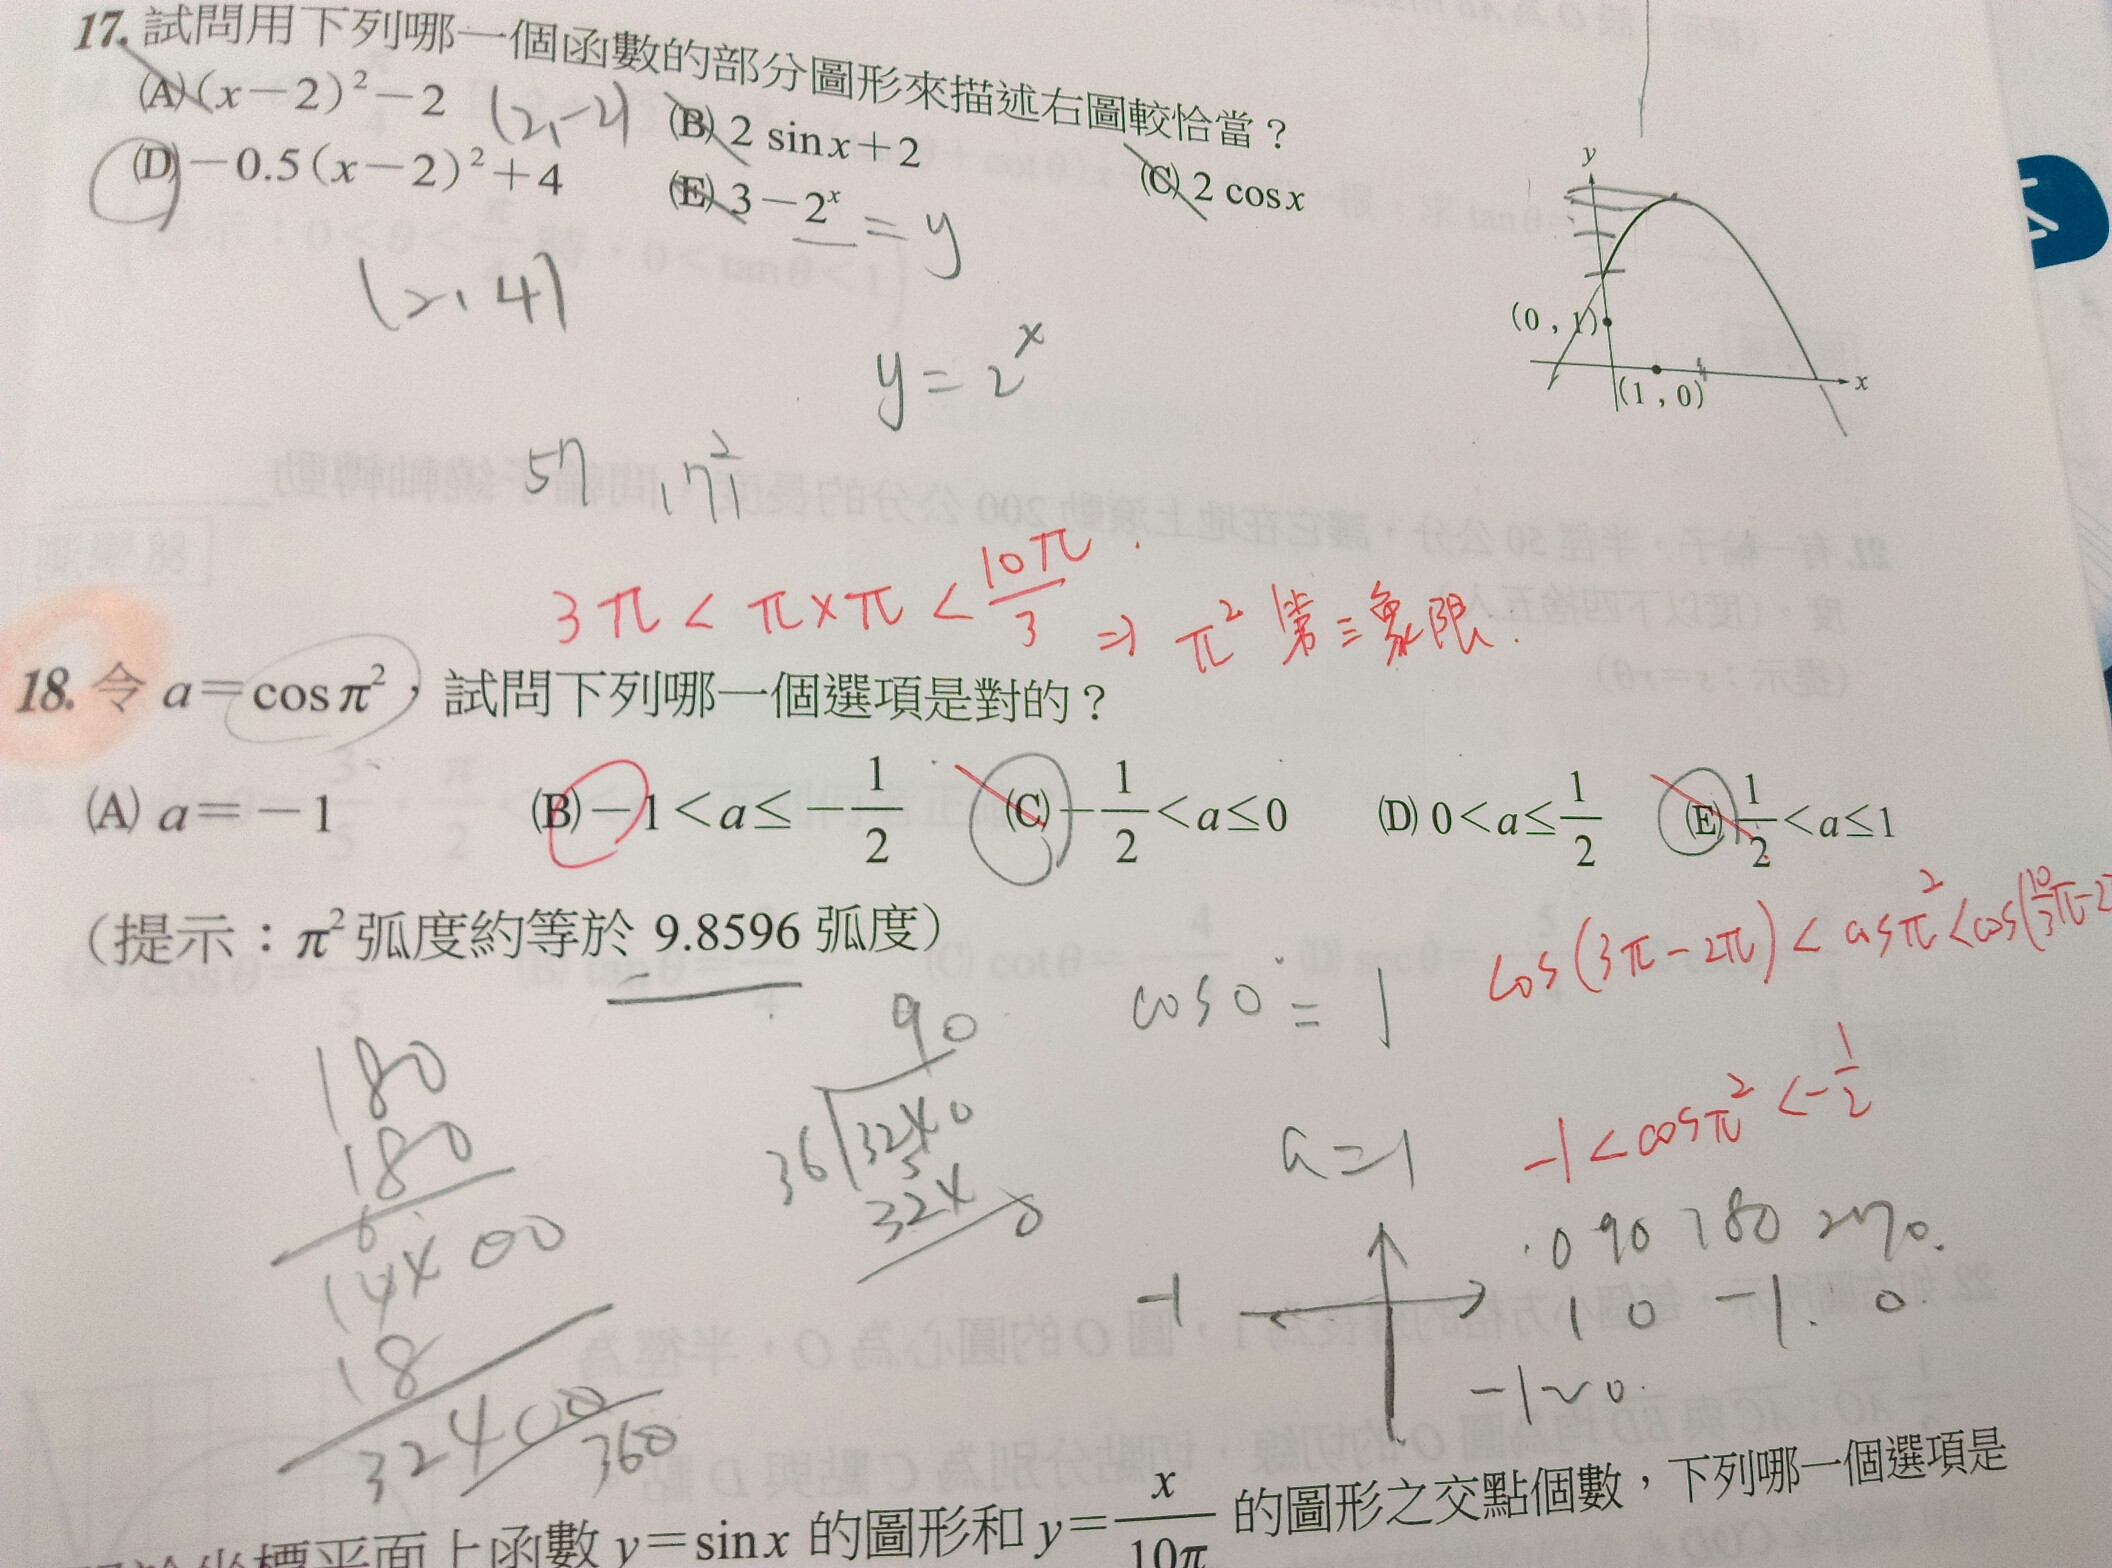 17. 試問用下列哪一個函數的部分圖形來描述右圖較恰當？
(A) (x－2)²－2 (2,-2) (B) 2 sinx＋2 (C) 2 cosx
(D) －0.5(x－2)²＋4 (E) 3－2ˣ = y
(2, 4)
y = 2ˣ
y
(0 , 1)
(1 , 0)
x
3π < π×π < 10π/3 ⇒ π² 第三象限.
18. 令 a＝cosπ²，試問下列哪一個選項是對的？
(A) a＝－1 (B) －1＜a≤－1/2 (C) －1/2＜a≤0 (D) 0＜a≤1/2 (E) 1/2＜a≤1
（提示：π²弧度約等於 9.8596 弧度）
cos(3π-2π) < cosπ² < cos(10/3π-2
cos0 = 1
-1 < cosπ² < -1/2
a=1
180
180
14400
18
32400
360
90
36 3240
324
0
0 90 180 270.
1 0 -1. 0.
-1
-1~0.
坐標平面上函數 y＝sinx 的圖形和 y＝x/10π 的圖形之交點個數，下列哪一個選項是